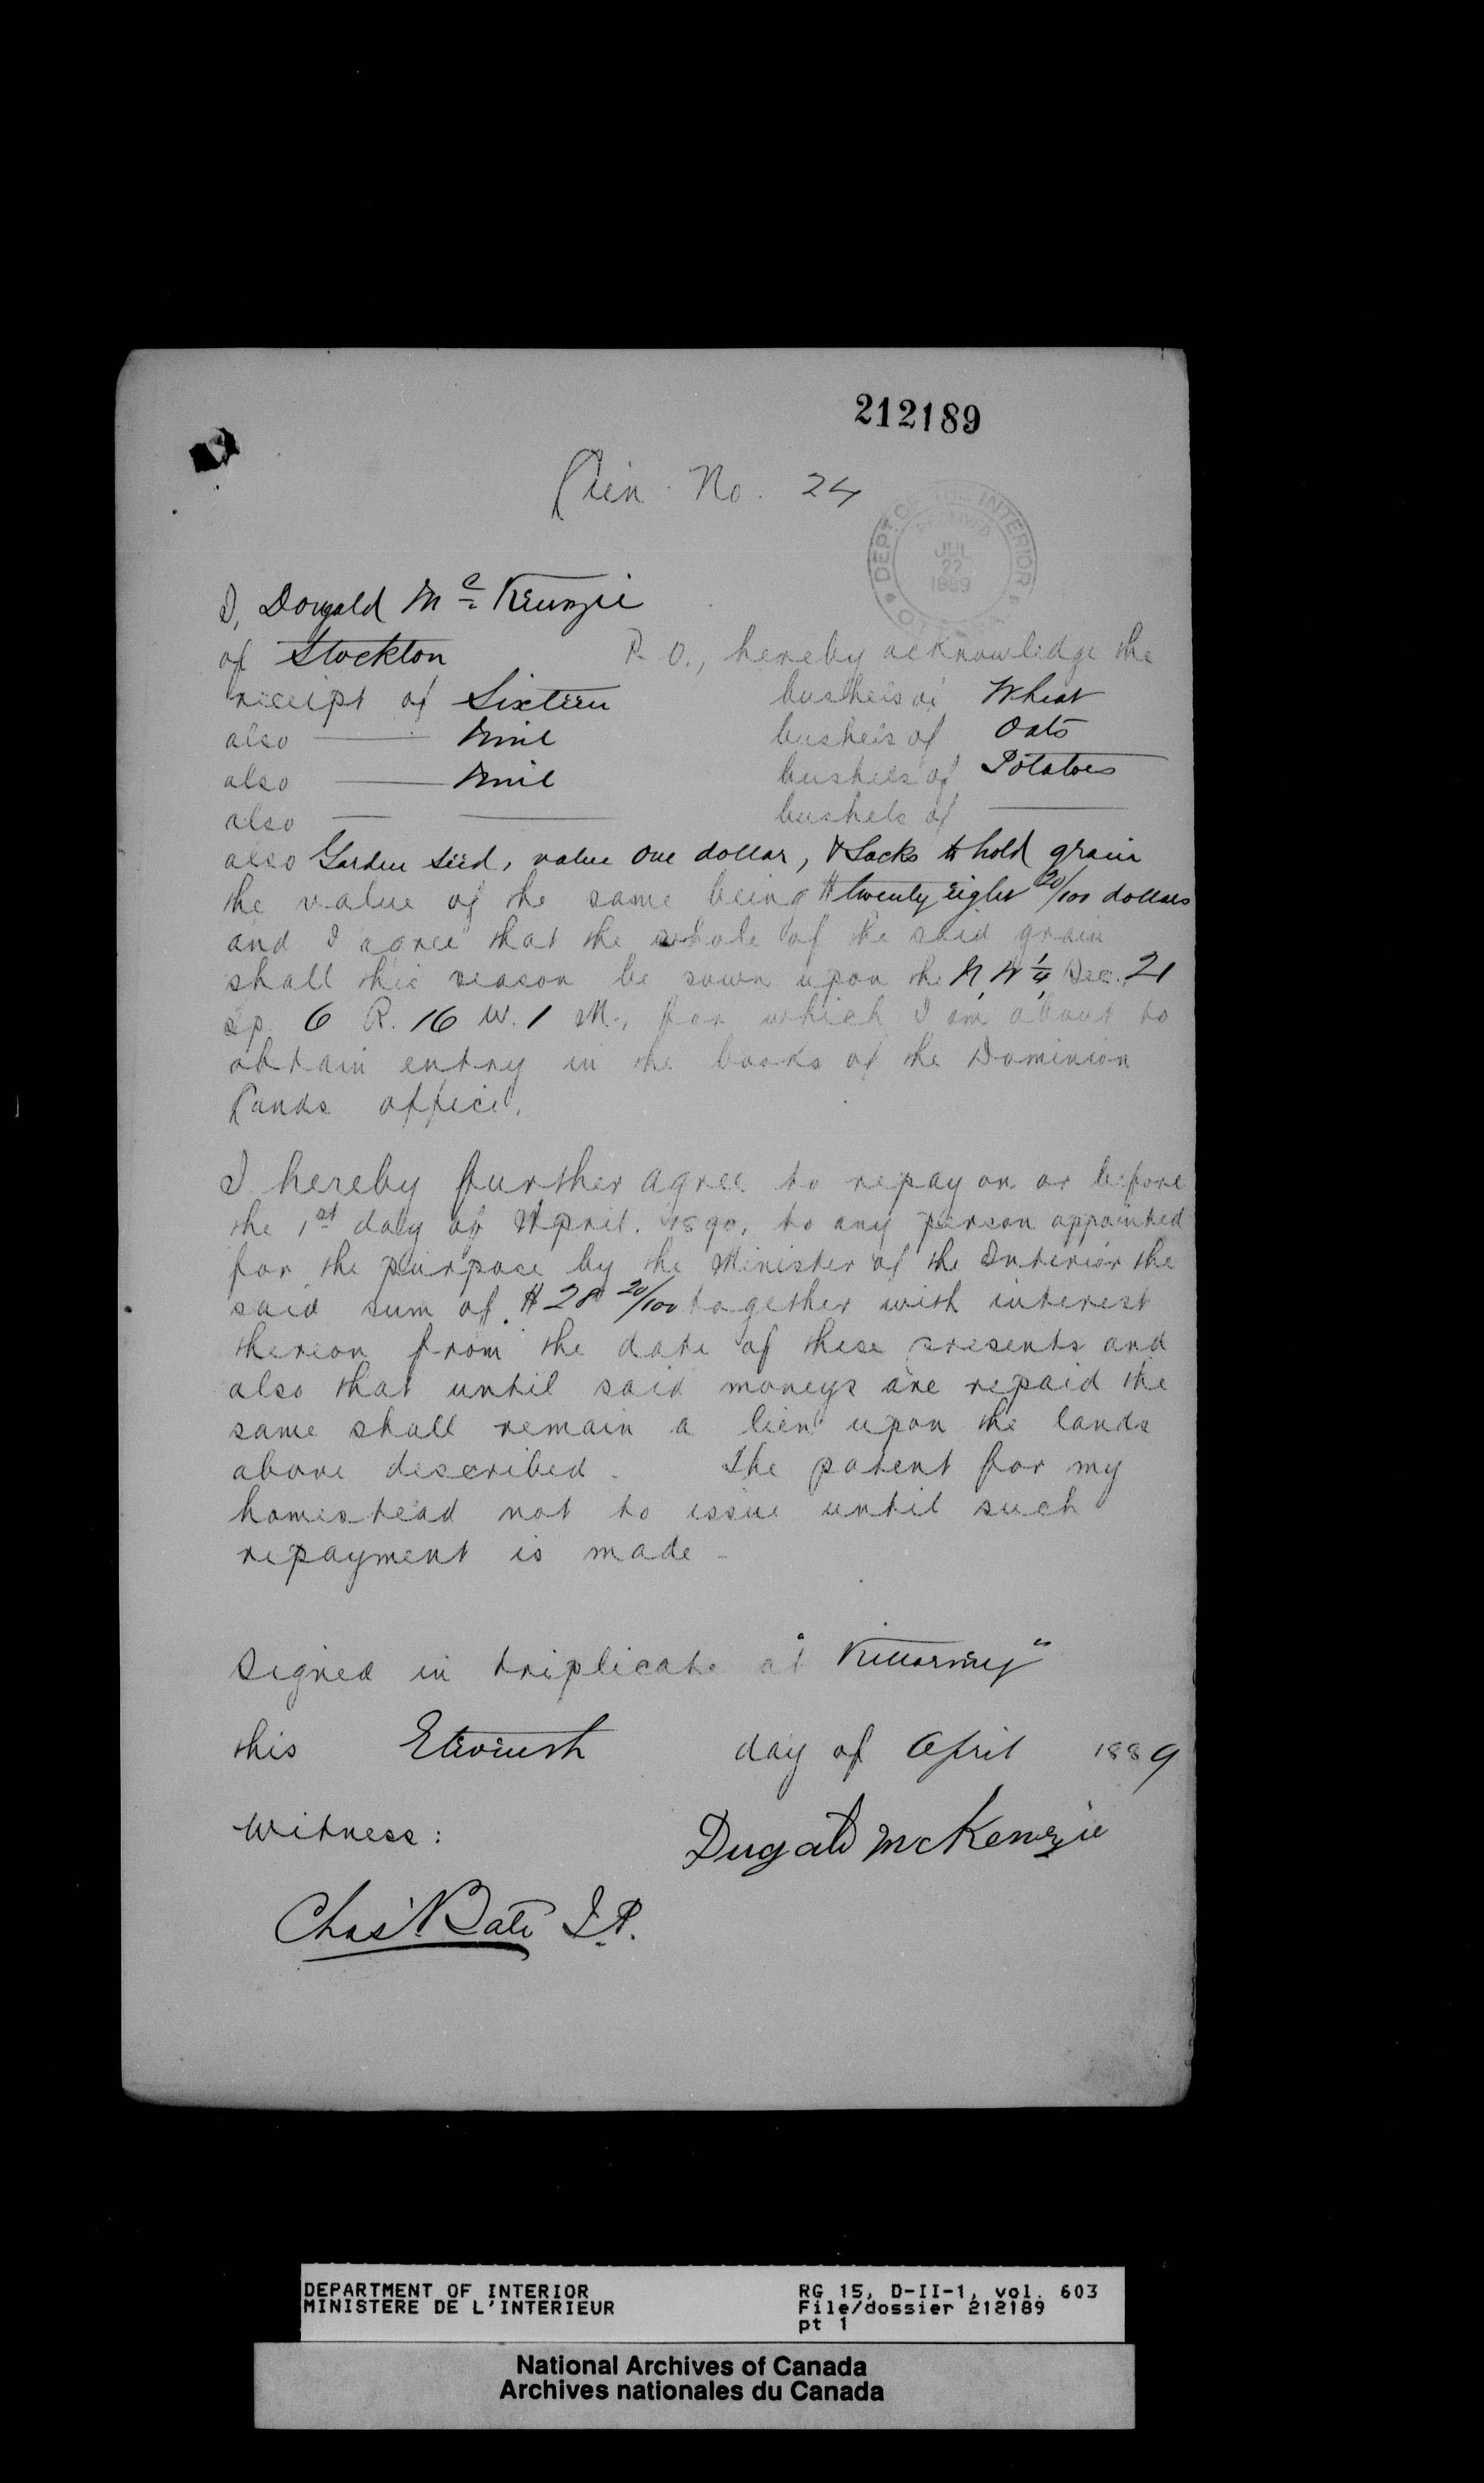 212189
Lien No. 24
DEPT. OF THE INTERIOR
RECEIVED
JUL
22
1889
I, Dougald Mc Kenzie
of Stockton P.O., hereby acknowledge the
receipt of Sixteen bushels of Wheat
also — Nine bushels of Oats
also — Nine bushels of Potatoes
also — — bushels of —
also Garden Seed, value One dollar, & Sacks to hold grain
the value of the same being $ twenty eight 20/100 dollars
and I agree that the whole of the said grain
shall this season be sown upon the N.W 1/4, Sec. 21
Tp. 6 R. 16 W. 1 M., for which I am about to
obtain entry in the books of the Dominion
Lands office.
I hereby further agree to repay on or before
the 1st day of April. 1890, to any person appointed
for the purpose by the Minister of the Interior the
said sum of $28 20/100 together with interest
thereon from the date of these presents and
also that until said moneys are repaid the
same shall remain a lien upon the lands
above described. The patent for my
homestead not to issue until such
repayment is made -
Signed in triplicate at "Killarney"
this Eleventh day of April 1889
Witness: Dugald McKenzie
Chas' Bate J.P.
DEPARTMENT OF INTERIOR RG 15, D-II-1, vol. 603
MINISTERE DE L'INTERIEUR File/dossier 212189
pt 1
National Archives of Canada
Archives nationales du Canada